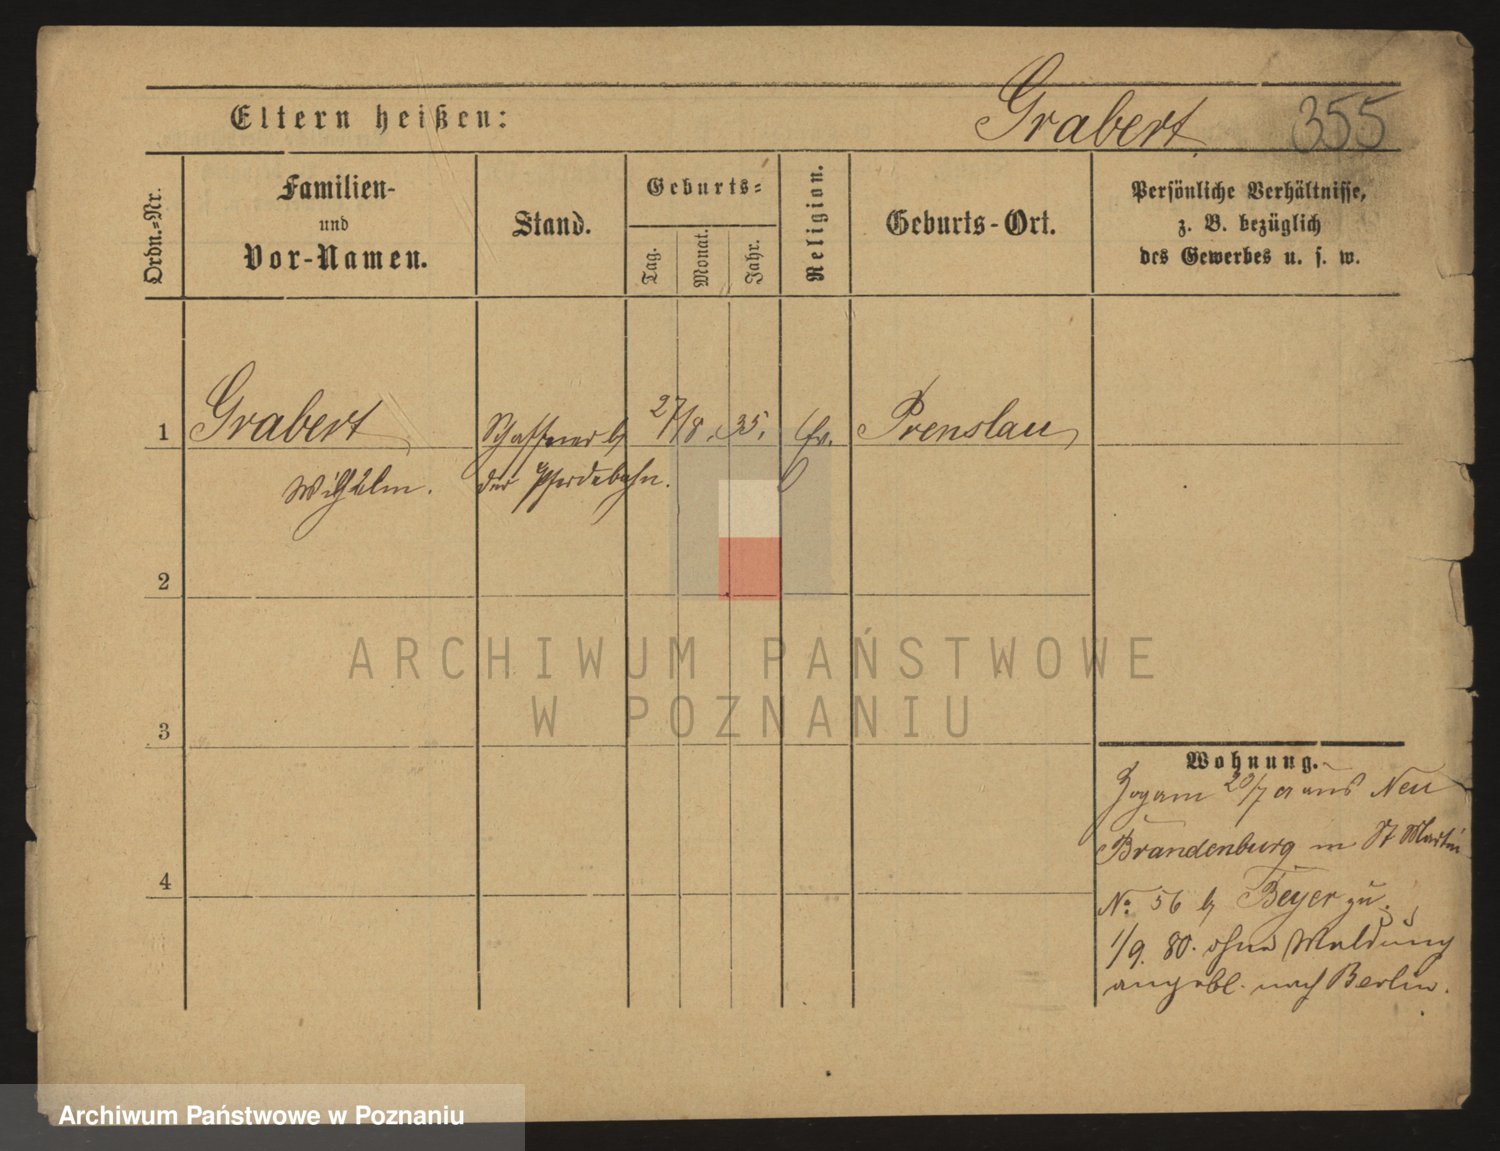 Eltern heißen:
Grabert 355
Ordn.-Nr.
Familien-
und
Vor-Namen.
Stand.
Geburts-
Tag.
Monat.
Jahr.
Religion.
Geburts-Ort.
Persönliche Verhältnisse,
z. B. bezüglich
des Gewerbes u. s. w.
1 Grabert Schaffner b/ 27/8. 35. Ev. Prenslau
Wilhelm. der Pferdebahn.
2
3
4
Wohnung.
Zog am 20/7 a aus Neu
Brandenburg in St Martin
No 56 b/ Beyer zu.
1/9. 80. ohne Meldung
angebl. nach Berlin.
ARCHIWUM PAŃSTWOWE
W POZNANIU
Archiwum Państwowe w Poznaniu